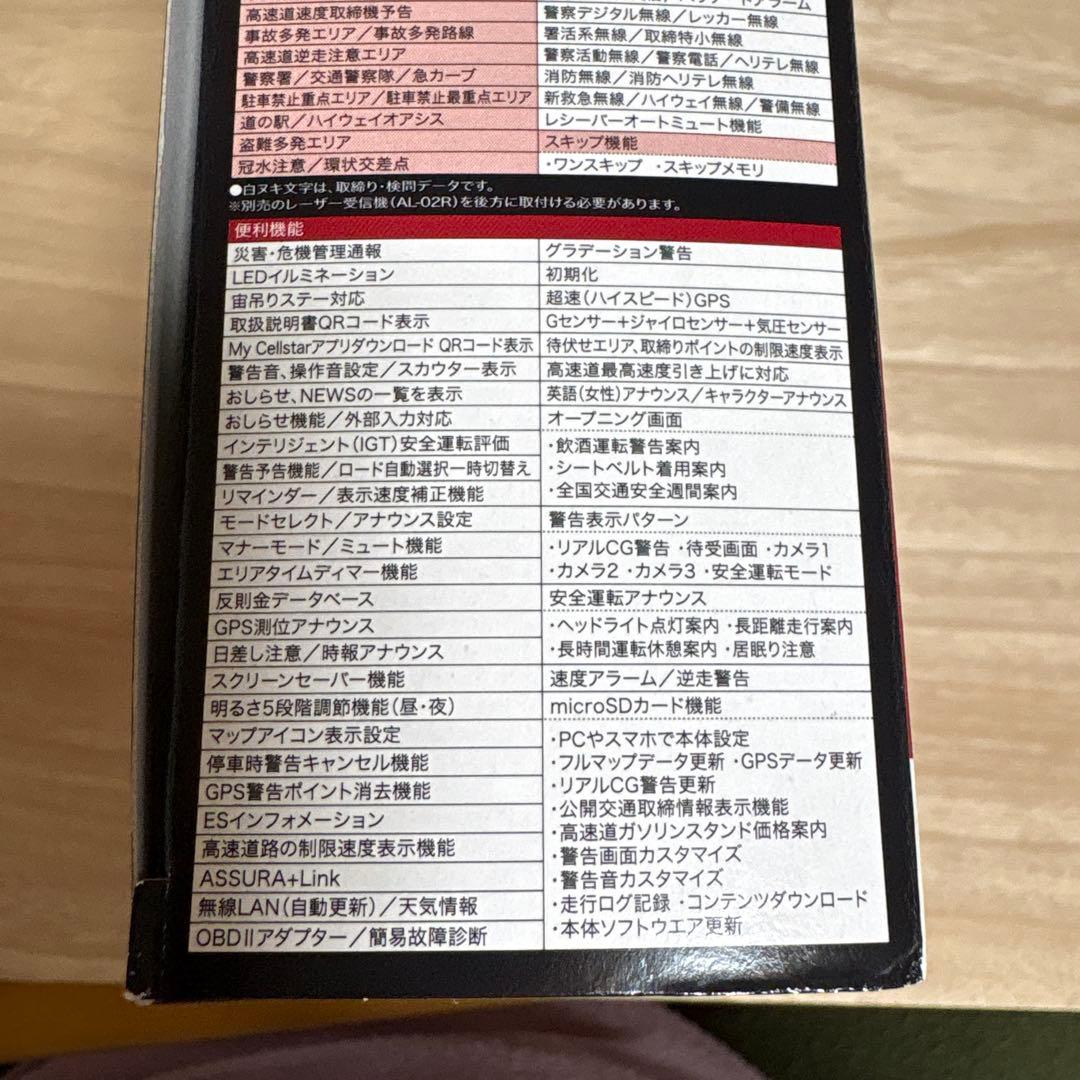 高速道速度取締機予告
事故多発エリア／事故多発路線
高速道逆走注意エリア
警察署／交通警察隊／急カーブ
駐車禁止重点エリア／駐車禁止最重点エリア
道の駅／ハイウェイオアシス
盗難多発エリア
冠水注意／環状交差点
警察デジタル無線／レッカー無線
署活系無線／取締特小無線
警察活動無線／警察電話／ヘリテレ無線
消防無線／消防ヘリテレ無線
新救急無線／ハイウェイ無線／警備無線
レシーバーオートミュート機能
スキップ機能
・ワンスキップ ・スキップメモリ
●白ヌキ文字は、取締り・検問データです。
※別売のレーザー受信機(AL-02R)を後方に取付ける必要があります。
便利機能
災害・危機管理通報
LEDイルミネーション
宙吊りステー対応
取扱説明書QRコード表示
My Cellstarアプリダウンロード QRコード表示
警告音、操作音設定／スカウター表示
おしらせ、NEWSの一覧を表示
おしらせ機能／外部入力対応
インテリジェント(IGT)安全運転評価
警告予告機能／ロード自動選択一時切替え
リマインダー／表示速度補正機能
モードセレクト／アナウンス設定
マナーモード／ミュート機能
エリアタイムディマー機能
反則金データベース
GPS測位アナウンス
日差し注意／時報アナウンス
スクリーンセーバー機能
明るさ5段階調節機能(昼・夜)
マップアイコン表示設定
停車時警告キャンセル機能
GPS警告ポイント消去機能
ESインフォメーション
高速道路の制限速度表示機能
ASSURA+Link
無線LAN(自動更新)／天気情報
OBDⅡアダプター／簡易故障診断
グラデーション警告
初期化
超速(ハイスピード)GPS
Gセンサー+ジャイロセンサー+気圧センサー
待伏せエリア、取締りポイントの制限速度表示
高速道最高速度引き上げに対応
英語(女性)アナウンス／キャラクターアナウンス
オープニング画面
・飲酒運転警告案内
・シートベルト着用案内
・全国交通安全週間案内
警告表示パターン
・リアルCG警告 ・待受画面 ・カメラ1
・カメラ2 ・カメラ3 ・安全運転モード
安全運転アナウンス
・ヘッドライト点灯案内 ・長距離走行案内
・長時間運転休憩案内 ・居眠り注意
速度アラーム／逆走警告
microSDカード機能
・PCやスマホで本体設定
・フルマップデータ更新 ・GPSデータ更新
・リアルCG警告更新
・公開交通取締情報表示機能
・高速道ガソリンスタンド価格案内
・警告画面カスタマイズ
・警告音カスタマイズ
・走行ログ記録 ・コンテンツダウンロード
・本体ソフトウエア更新